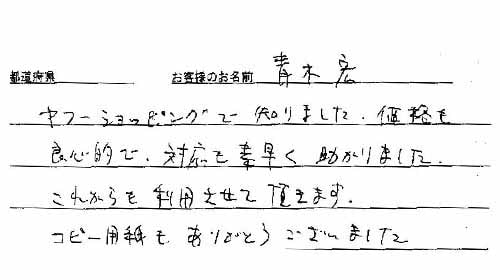 都道府県 お客様のお名前 青木宏
ヤフーショッピングで知りました。価格も
良心的で、対応も素早く助かりました。
これからも利用させて頂きます。
コピー用紙もありがとうございました